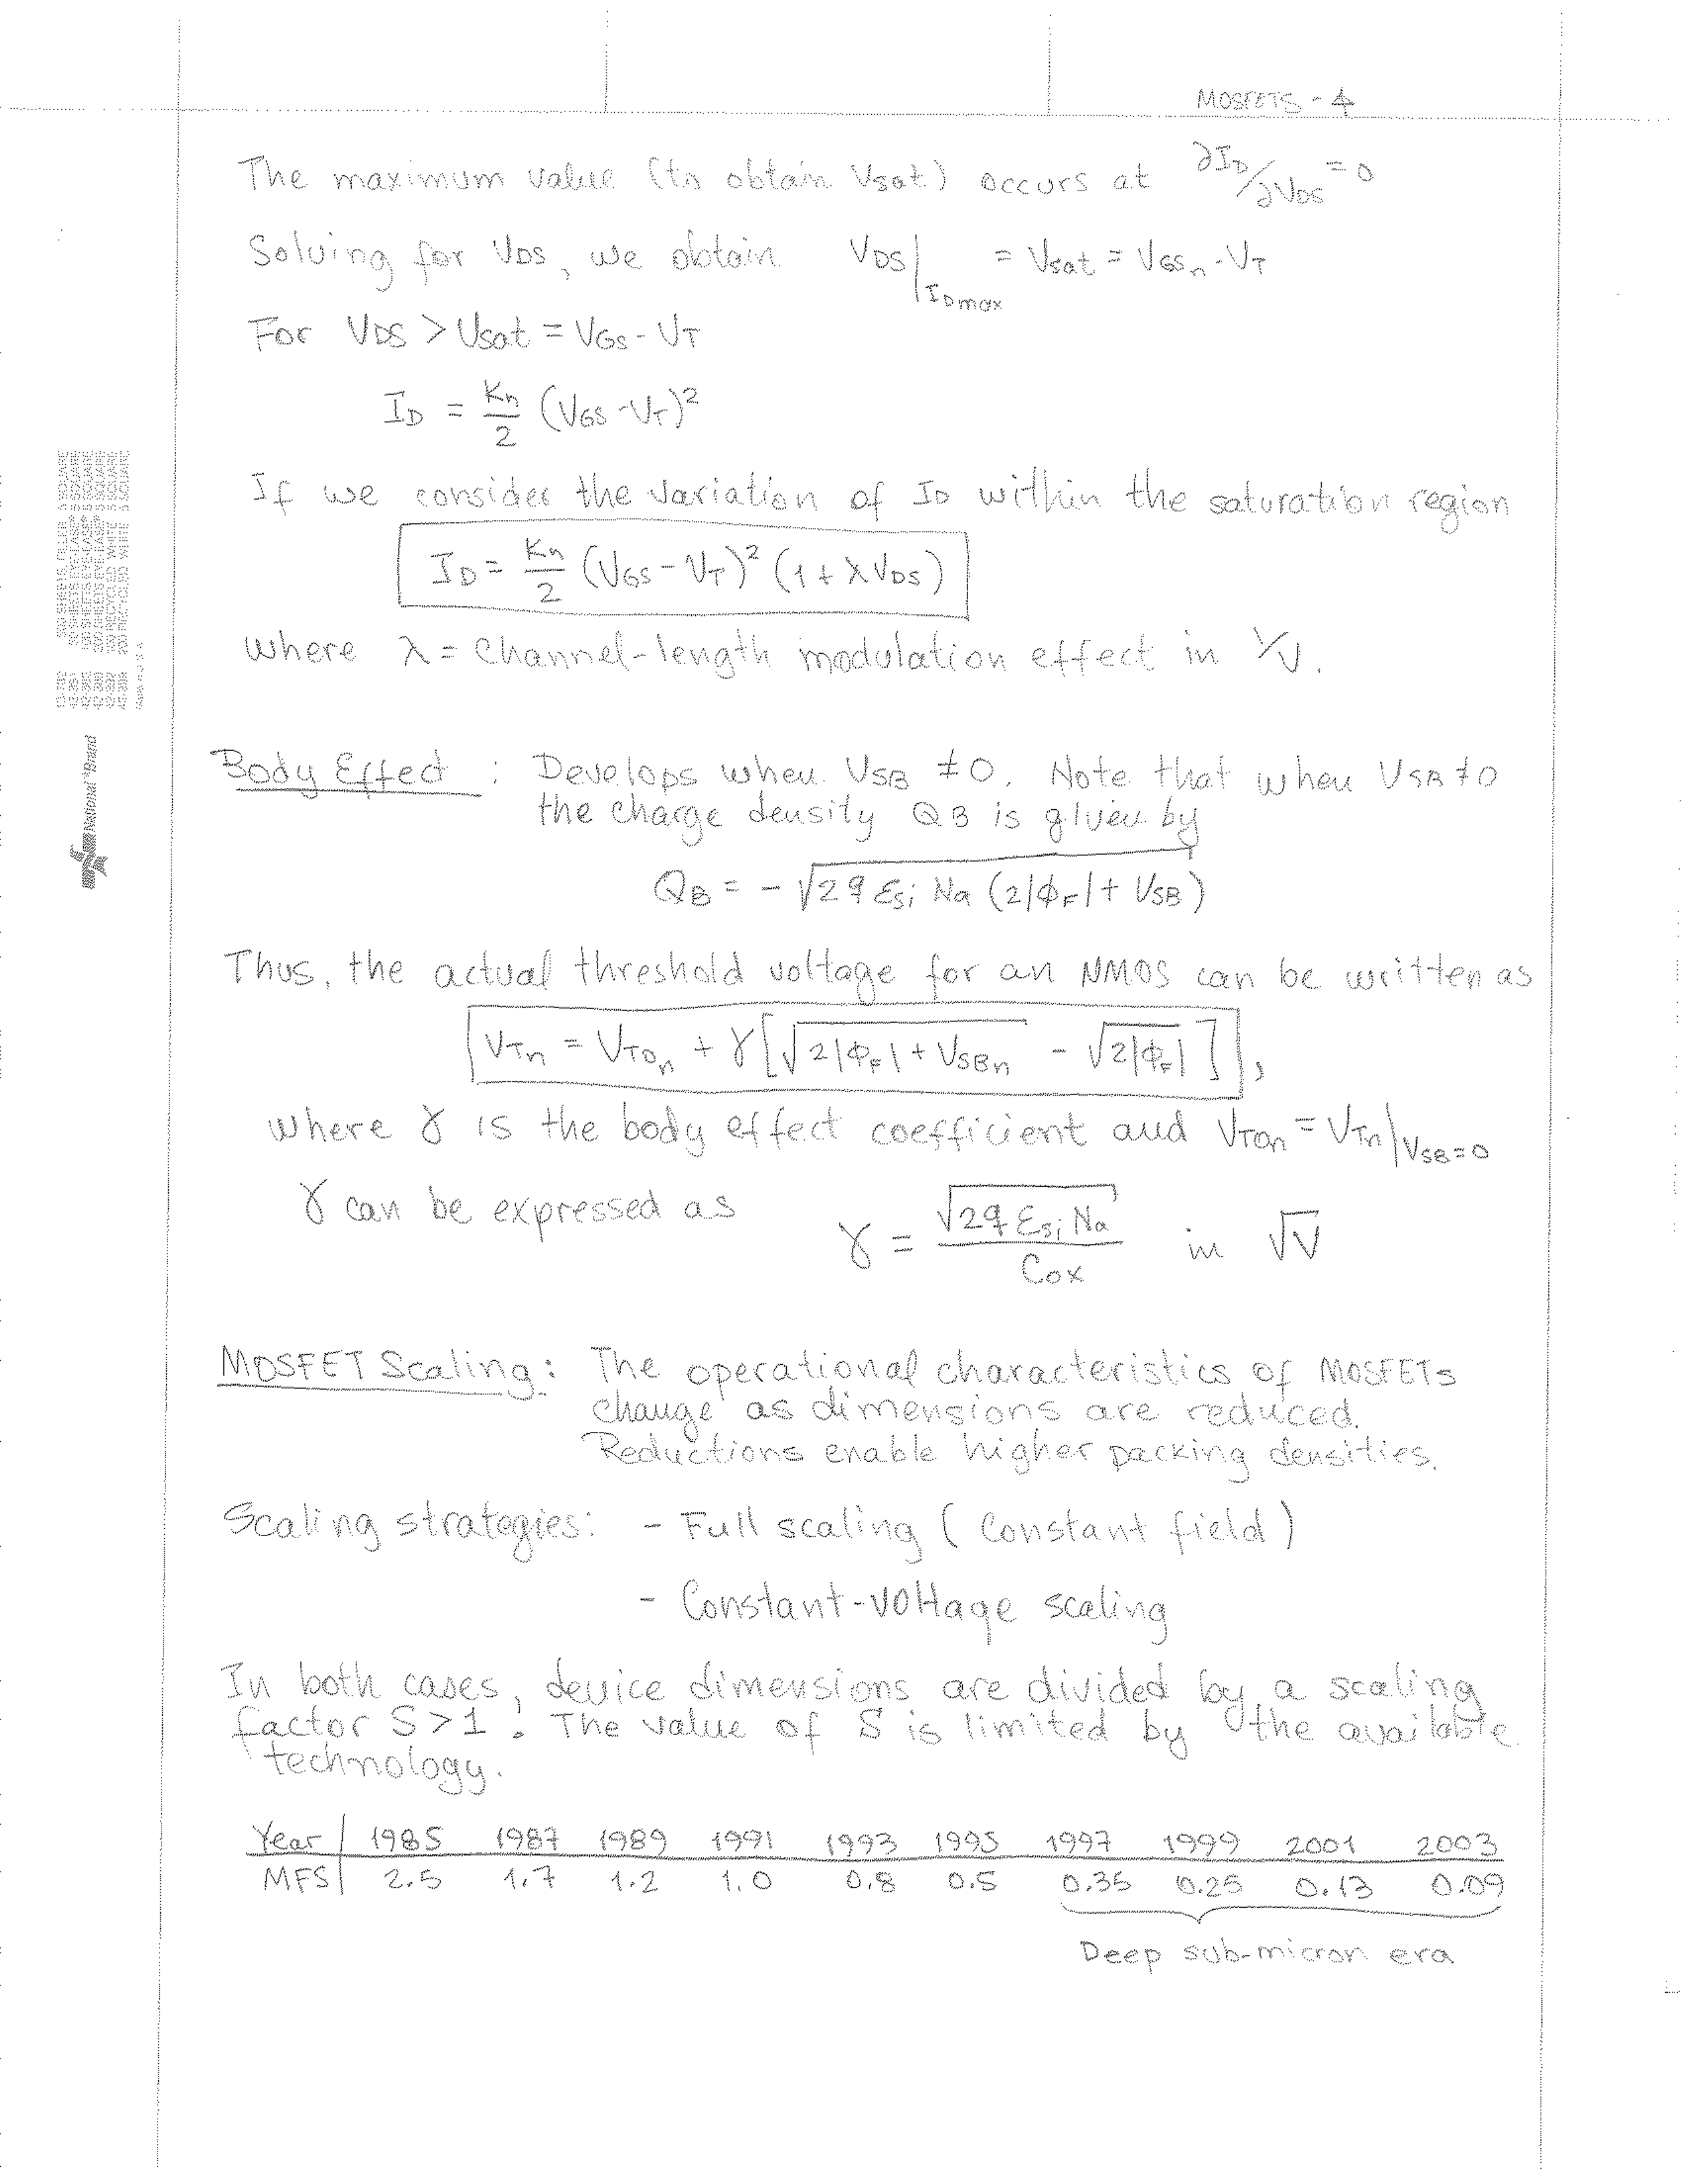 MOSFETS - 4
The maximum value (to obtain Vsat) occurs at ∂ID/∂VDS = 0
Solving for VDS, we obtain VDS|IDmax = Vsat = VGSn - VT
For VDS > Vsat = VGS - VT
ID = Kn/2 (VGS - VT)²
If we consider the variation of ID within the saturation region
ID = Kn/2 (VGS - VT)² (1 + λVDS)
where λ = channel-length modulation effect in 1/V.
Body Effect : Develops when VSB ≠ 0. Note that when VSB ≠ 0
the charge density QB is given by
QB = - √(2q εSi Na (2|ΦF| + VSB))
Thus, the actual threshold voltage for an NMOS can be written as
VTn = VT0n + γ[√(2|ΦF| + VSBn) - √(2|ΦF|)],
where γ is the body effect coefficient and VT0n = VTn|VSB=0
γ can be expressed as γ = √(2q εSi Na)/Cox in √V
MOSFET Scaling: The operational characteristics of MOSFETs
change as dimensions are reduced.
Reductions enable higher packing densities.
Scaling strategies: - Full scaling (constant field)
- Constant-voltage scaling
In both cases, device dimensions are divided by a scaling
factor S>1. The value of S is limited by the available
technology.
Year | 1985 1987 1989 1991 1993 1995 1997 1999 2001 2003
MFS | 2.5 1.7 1.2 1.0 0.8 0.5 0.35 0.25 0.13 0.09
Deep sub-micron era
National Brand